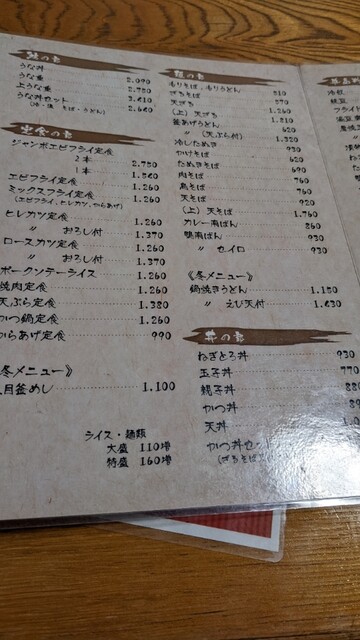 の部
うな丼
うな重 2.090
上うな重 2.750
うな丼セット
(冷・温 そば・うどん) 2.660
定食の部
ジャンボエビフライ定食
2本 2.750
1本
エビフライ定食 1.260
ミックスフライ定食 1.260
(エビフライ,ヒレカツ,からあげ)
ヒレカツ定食 1.260
〃 おろし付 1.370
ロースカツ定食 1.260
〃 おろし付 1.370
ポークソテーライス 1.260
焼肉定食 1.260
天ぷら定食 1.380
かつ鍋定食 1.260
からあげ定食 990
冬メニュー》
目釜めし 1.100
ライス・麺類
大盛 110増
特盛 160増
麺の部
もりそば,もりうどん 510
ざるそば
天ざる
(上) 天ざる 1.260
釜あげうどん 1.810
〃 (天ぷら付) 620
冷したぬき 1.320
かけそば
たぬきそば 620
肉そば 690
鳥そば 760
天そば 920
(上) 天そば 1.760
カレー南ばん 860
鴨南ばん 930
〃 セイロ 930
《冬メニュー》
鍋焼きうどん 1.150
〃 えび天付 1.630
丼の部
ねぎとろ丼 930
玉子丼 770
親子丼 88
かつ丼
天丼 1.0
かつ丼セ
(ざるそば
冷奴
枝豆
フライ